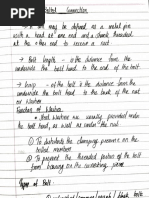 Bolted Connection
→ A bolt may be defined as a metal pin
with a head at one end and a shank threaded
at the other end to receive a nut
→ Bolt length - is the distance from the
underside the bolt head to the end of the bolt.
→ Grip - of the bolt is the distance from the
underside the bolt head to the end of the
nut or washer
Function of Washer
• that washer are usually provided under
the bolt head, as well as under the nut
① To distribute the clamping pressure on the
bolted member
② To prevent the threaded portion of the bolt
from bearing on the connecting piece
Types of Bolt